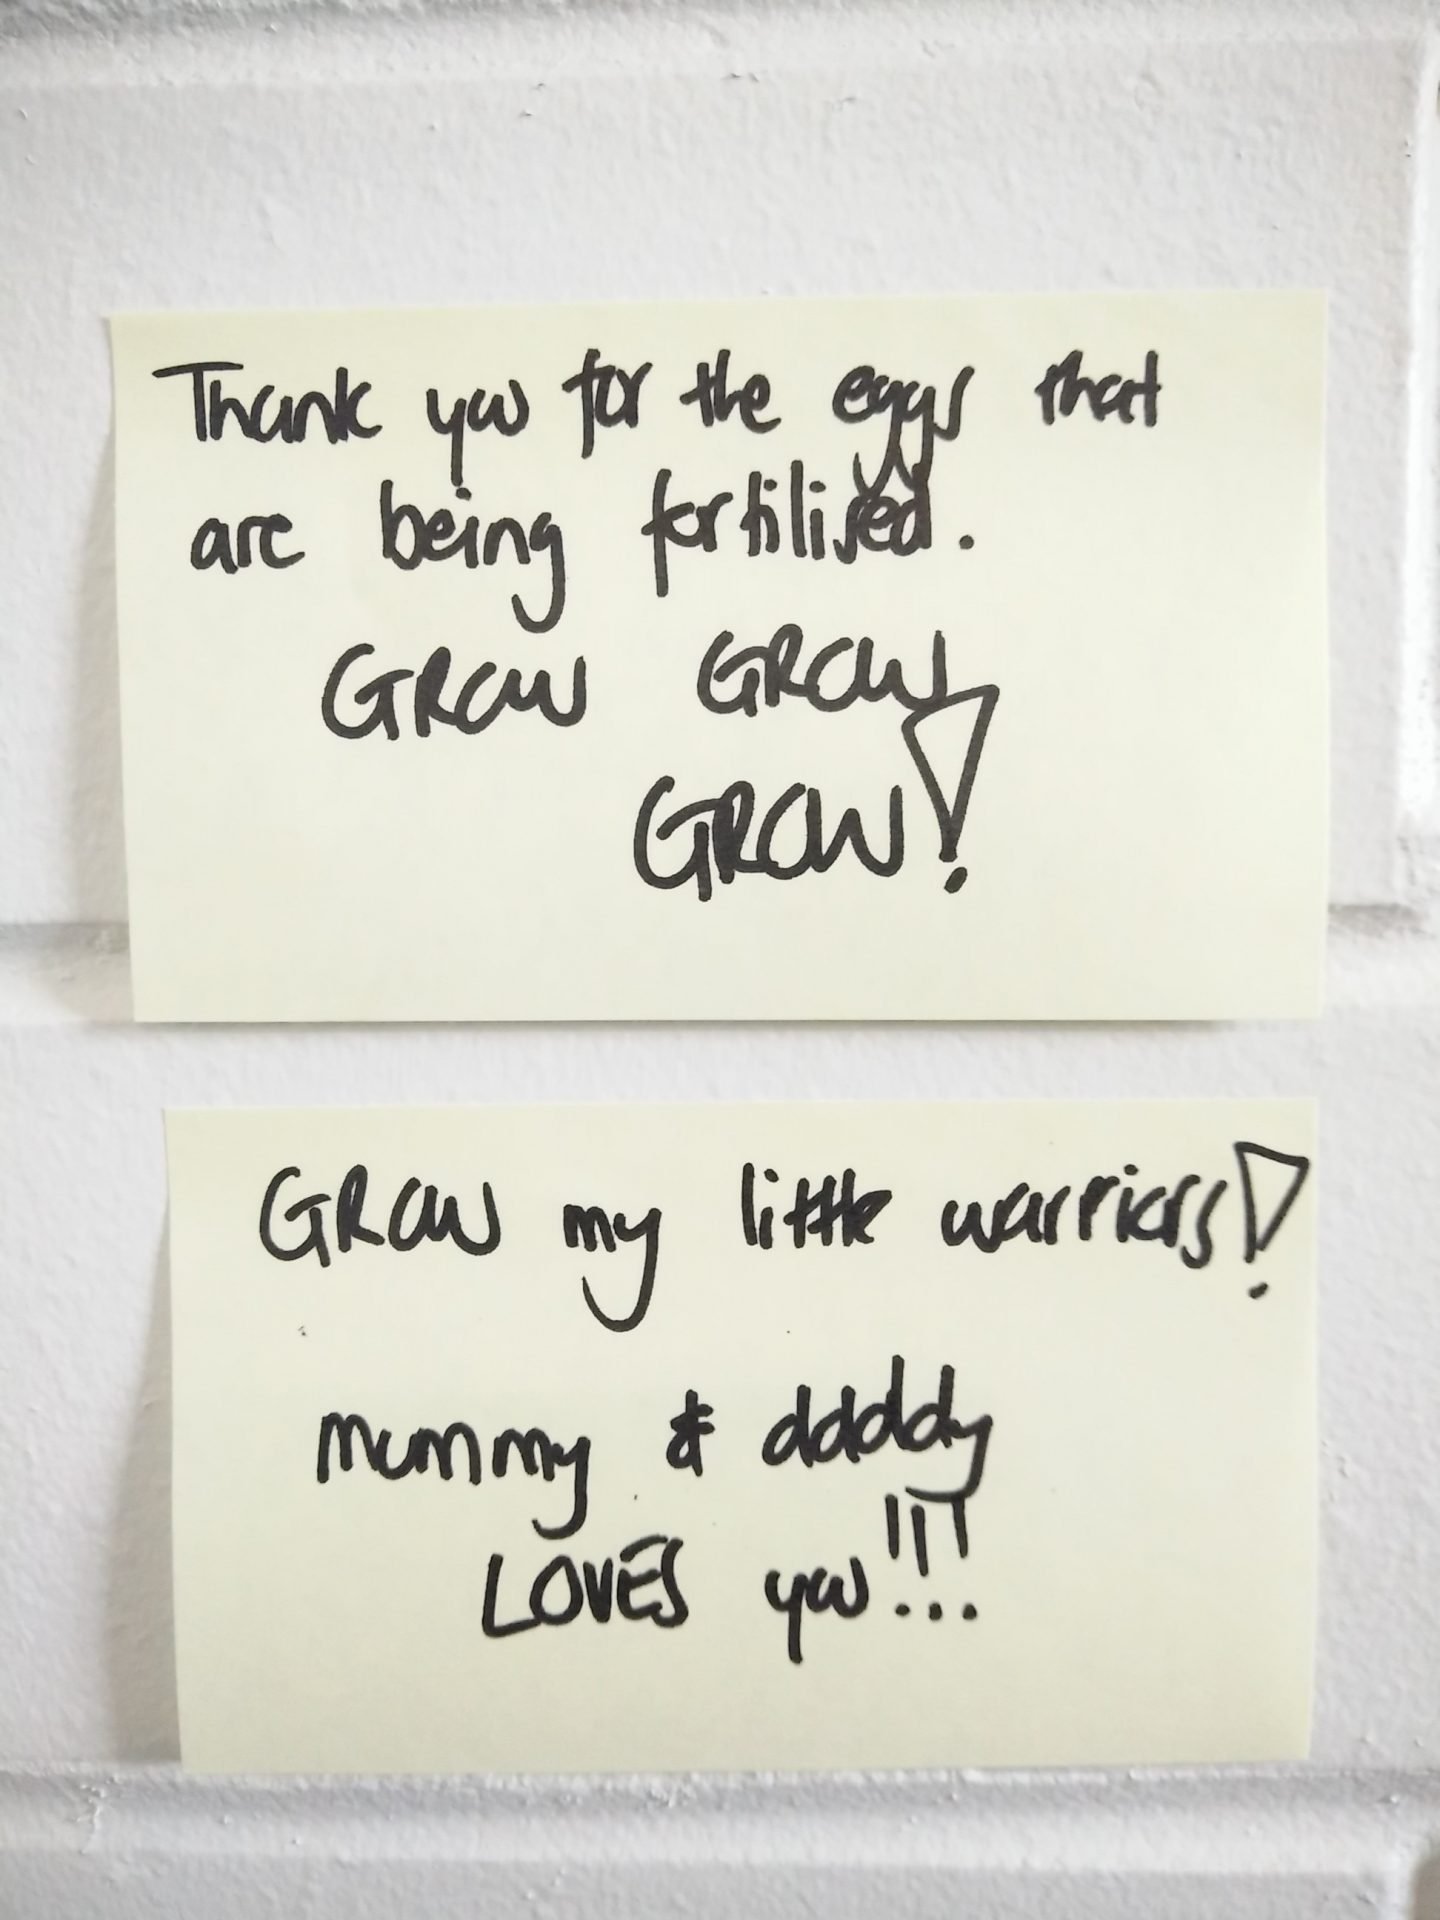 Thank you for the eggs that
are being fortilised.
GROW GROW
GROW!
GROW my little warriors!
mummy & daddy
LOVES you!!!